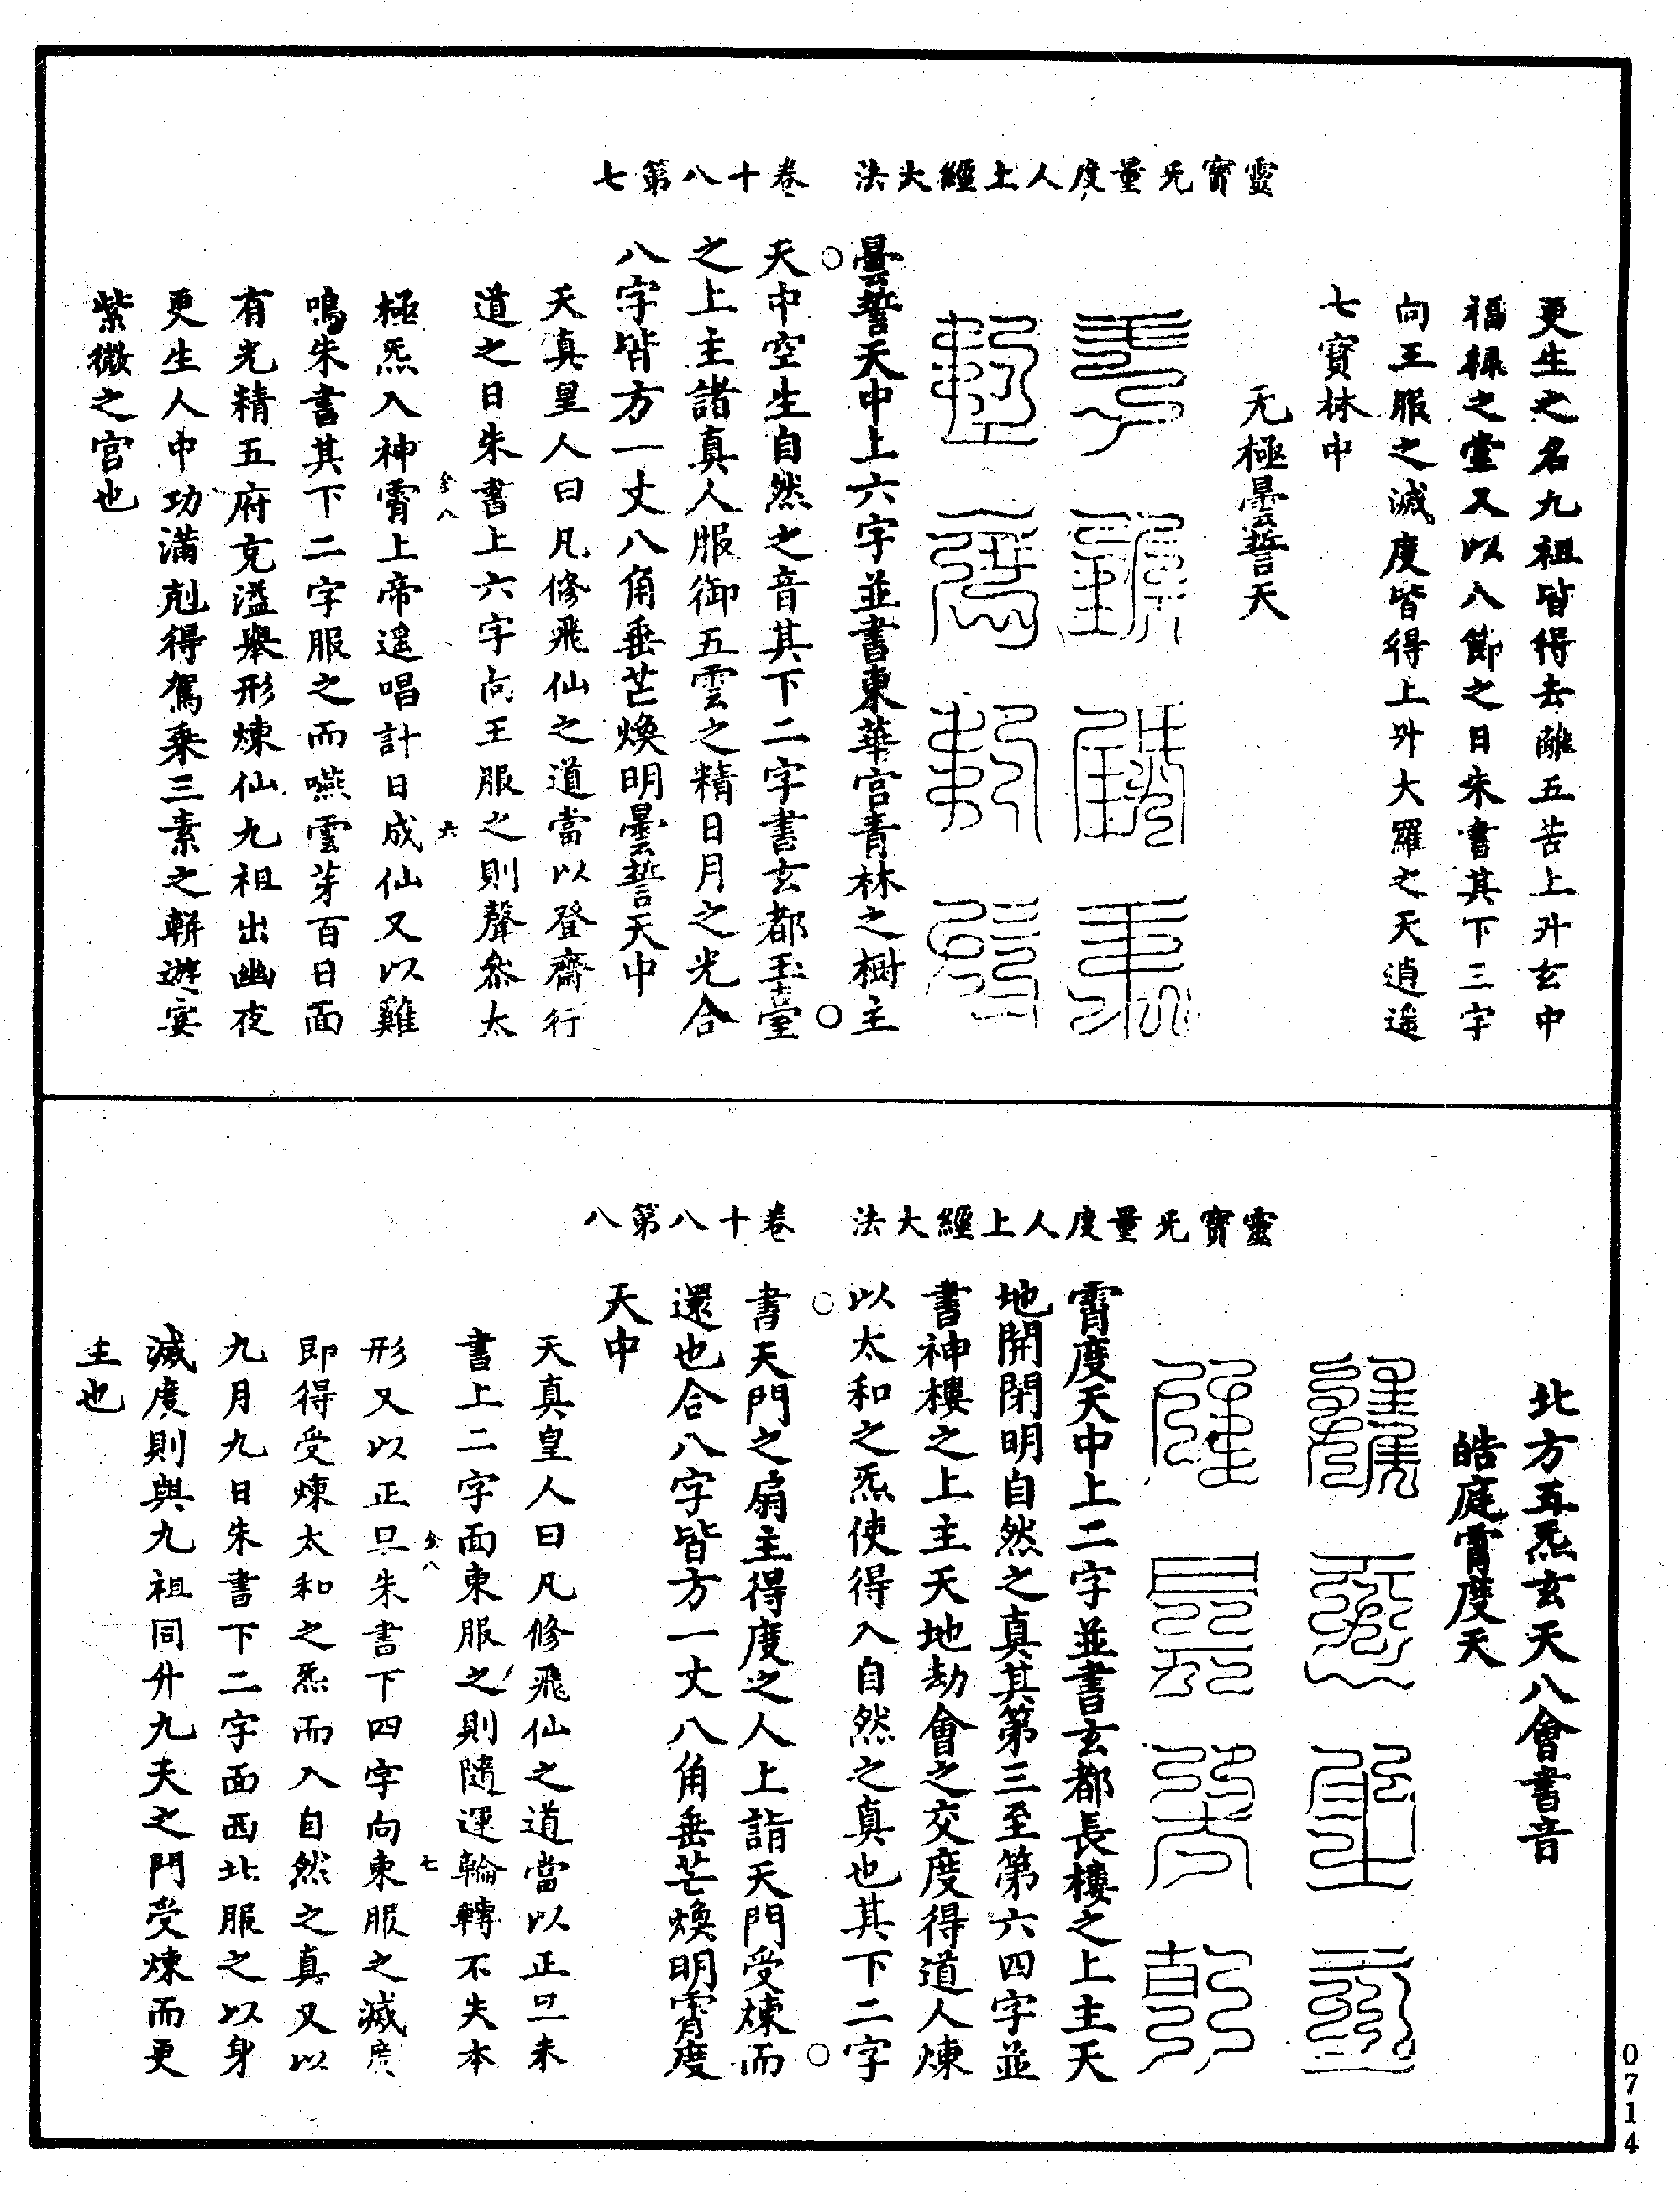 靈寶旡量度人上經大法　卷十八第七
更生之名九祖皆得去離五苦上升玄中
福祿之堂又以八節之日朱書其下三字
向王服之滅度皆得上升大羅之天逍遥
七寶林中
无極曇誓天
曇誓天中上六字並書東華宮青林之樹主
天中空生自然之音其下二字書玄都玉臺
之上主諸真人服御五雲之精日月之光合
八字皆方一丈八角垂芒煥明曇誓天中
天真皇人曰凡修飛仙之道當以登齋行
道之日朱書上六字向王服之則聲叅太
金八　六
極炁入神霄上帝遥唱計日成仙又以雞
鳴朱書其下二字服之而嚥雲芽百日面
有光精五府充溢舉形煉仙九祖出幽夜
更生人中功滿剋得駕乗三素之軿遊宴
紫微之宫也
靈寶旡量度人上經大法　卷十八第八
北方五炁玄天八會書音
皓庭霄度天
霄度天中上二字並書玄都長樓之上主天
地開閉明自然之真其第三至第六四字並
書神樓之上主天地劫會之交度得道人煉
以太和之炁使得入自然之真也其下二字
書天門之扇主得度之人上詣天門受煉而
還也合八字皆方一丈八角垂芒煥明霄度
天中
天真皇人曰凡修飛仙之道當以正旦朱
書上二字面東服之則隨運輪轉不失本
金八　七
形又以正旦朱書下四字向東服之滅度
即得受煉太和之炁而入自然之真又以
九月九日朱書下二字面西北服之以身
滅度則與九祖同升九天之門受煉而更
生也
0714